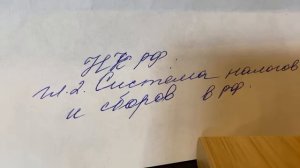 НК РФ.
гл. 2. Система налогов
и сборов в РФ.